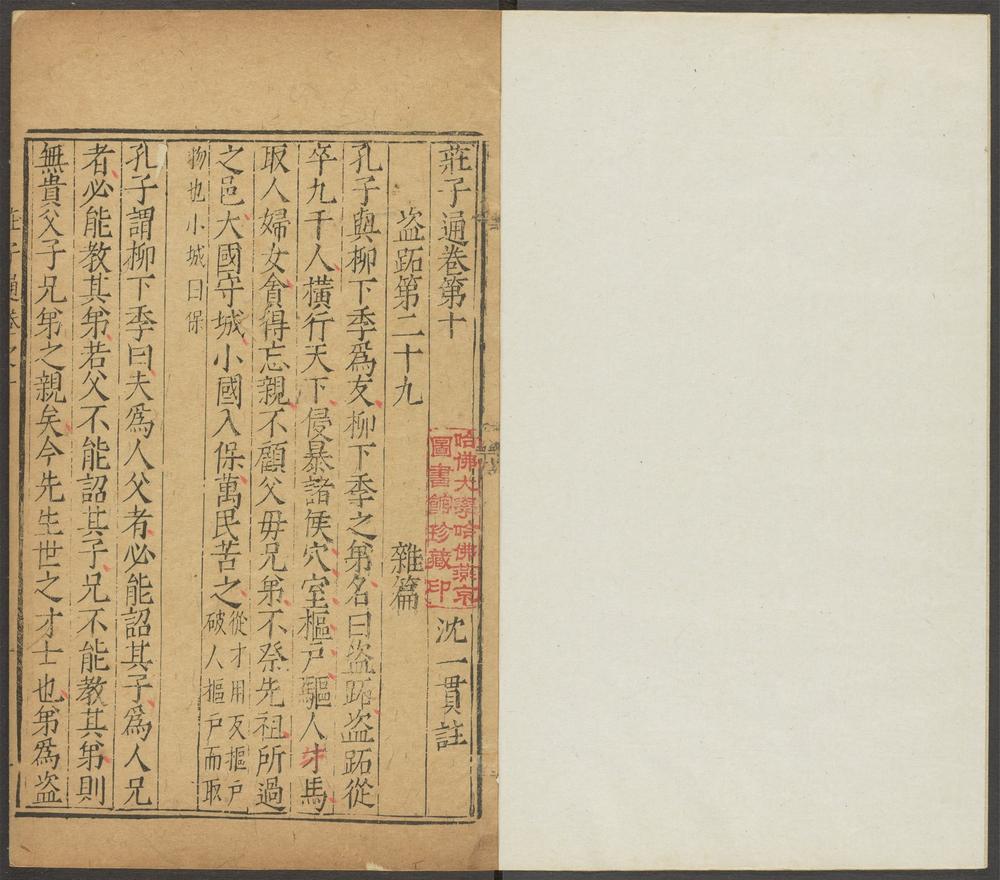 莊子通卷第十
沈一貫註
盜跖第二十九
雜篇
孔子與柳下季爲友柳下季之弟名曰盜跖盜跖從
卒九千人橫行天下侵暴諸侯穴室樞戶驅人牛馬
取人婦女貪得忘親不顧父母兄弟不祭先祖所過
之邑大國守城小國入保萬民苦之
從才用反摳戶
破人摳戶而取
物也小城曰保
孔子謂柳下季曰夫爲人父者必能詔其子爲人兄
者必能教其弟若父不能詔其子兄不能教其弟則
無貴父子兄弟之親矣今先生世之才士也弟爲盜
哈佛大學哈佛燕京
圖書館珍藏印